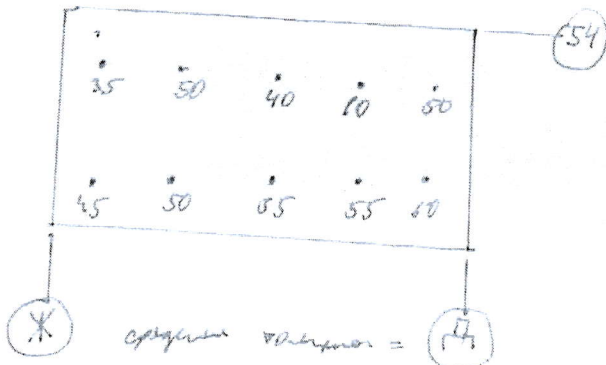 54
35 50 40 60 50
45 50 35 55 60
Ж средняя толщина = Д